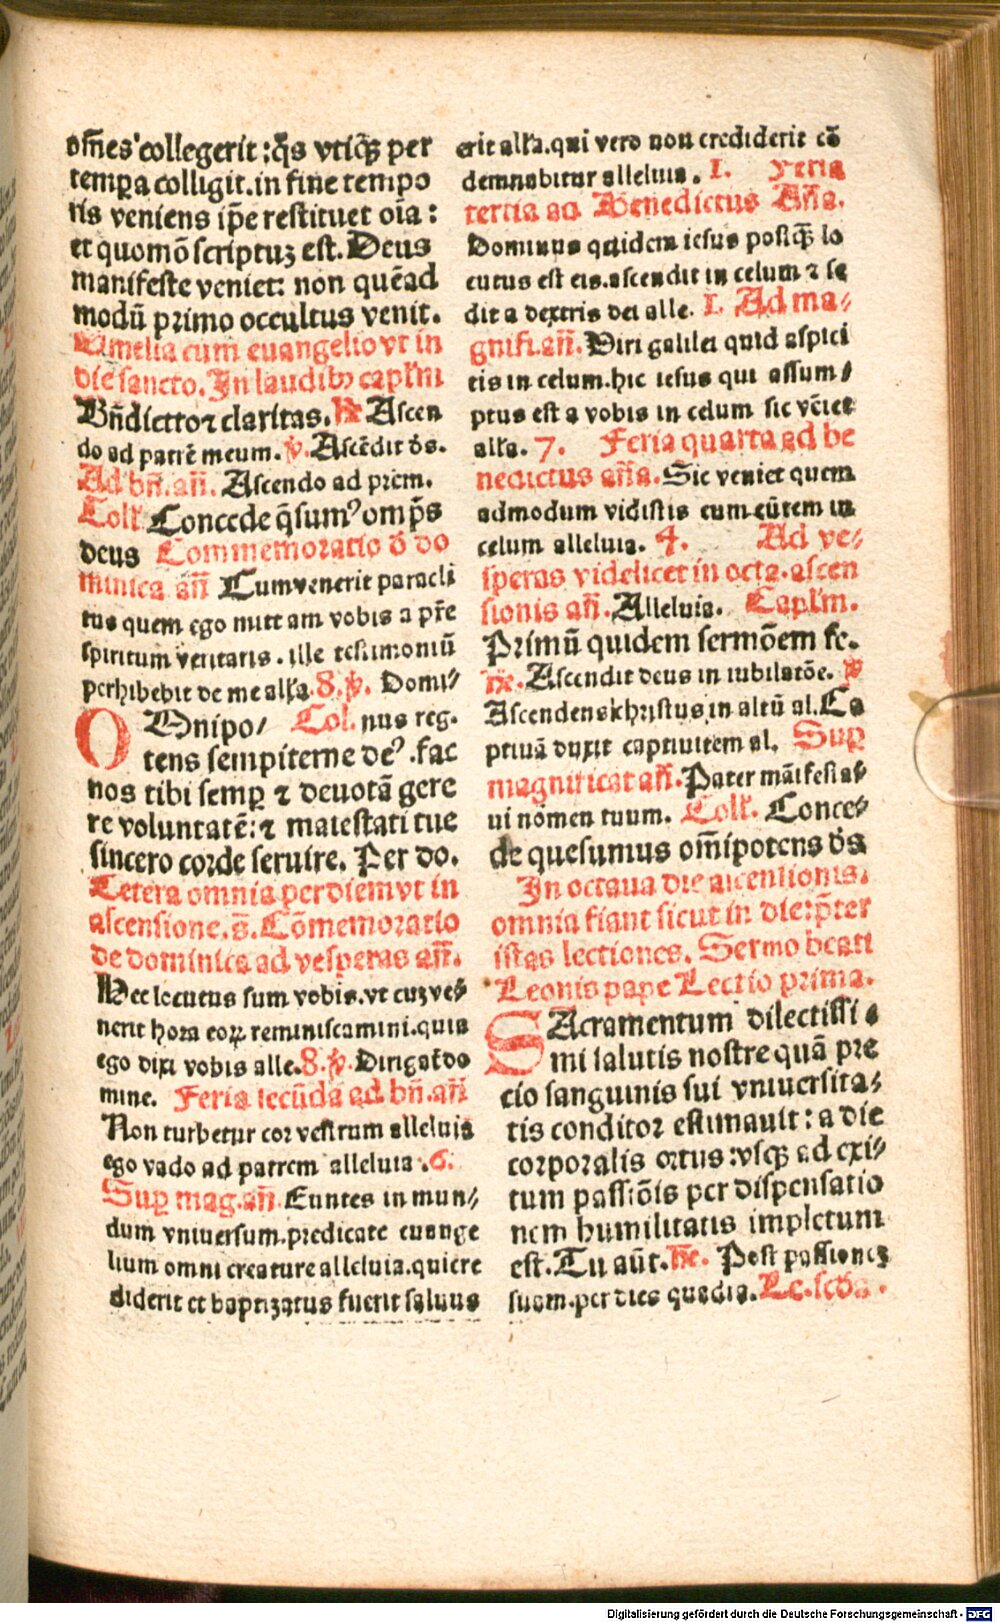 om̄es collegerit : q̄s vtiqȝ per
temꝑa colligit. in fine tempo
ris veniens ip̄e restituet oīa :
et quomō scriptuȝ est. Deus
manifeste veniet: non quēad
modū primo occultus venit.
Omelia cum euangelio vt in
die sancto. In laudibꝫ capl'm
Bn̄dictio ⁊ claritas. ℞ Ascen
do ad patrē meum. ℣. Ascēdit ds̄.
Ad bn̄. an̄. Ascendo ad prem.
Coll'. Concede q̄sumꝰ omp̄s
deus Commemoratio d̄ do
minica an̄ Cum venerit paracli
tus quem ego mittam vobis a pr̄e
spiritum veritatis. ille testimoniū
perhibebit de me all'a. 8. ℣. Domi⸗
OMnipo⸗ Col. nus reg.
tens sempiterne deꝰ. fac
nos tibi semꝑ ⁊ deuotā gere
re voluntatē: ⁊ maiestati tue
sincero corde seruire. Per do.
Cetera omnia per diem vt in
ascensione. s̄. Cōmemoratio
de dominica ad vesperas an̄.
Hec locutus sum vobis. vt cuȝ ve⸗
nerit hora eoꝝ reminiscamini. quia
ego dixi vobis alle. 8. ℣. Dirigat̄ do
mine. Feria secūda ad bn̄. an̄
Non turbetur cor vestrum alleluia
ego vado ad patrem alleluia. 6.
Suꝑ mag. an̄. Euntes in mun⸗
dum vniuersum. predicate euange
lium omni creature alleluia. qui cre
diderit et baptizatus fuerit saluus
erit all'a. qui vero non crediderit cō
demnabitur alleluia. 1. Feria
tertia ad Benedictus Añа.
Dominus quidem iesus postqȝ lo
cutus est eis. ascendit in celum ⁊ se
dit a dextris dei alle. 1. Ad ma⸗
gnifi. an̄. Uiri galilei quid aspici
tis in celum. hic iesus qui assum⸗
ptus est a vobis in celum sic vēiet
all'a. 7. Feria quarta ad be
nedictus an̄a. Sic veniet quem
admodum vidistis eum eūtem in
celum alleluia. 4. Ad ve⸗
speras videlicet in octa. ascen
sionis an̄. Alleluia. Capl'm.
Primū quidem sermōem fe.
℞. Ascendit deus in iubilatōe. ℣
Ascendens christus in altū al. Ca
ptiuā duxit captiuitem al. Suꝑ
magnificat an̄. Pater māifestaꝰ
ui nomen tuum. Coll'. Conce⸗
de quesumus om̄ipotens ds̄
In octaua die ascensionis.
omnia fiant sicut in die: p̄ter
istas lectiones. Sermo beati
Leonis pape Lectio prima.
SAcramentum dilectissi⸗
mi salutis nostre quā pre
cio sanguinis sui vniuersita⸗
tis conditor estimauit : a die
corporalis ortus : vsqȝ ad exi⸗
tum passiōis per dispensatio
nem humilitatis impletum
est. Tu aūt. ℞. Post passioneȝ
suam. per dies quadra. Lc. scd̄a.
Digitalisierung gefördert durch die Deutsche Forschungsgemeinschaft - DFG